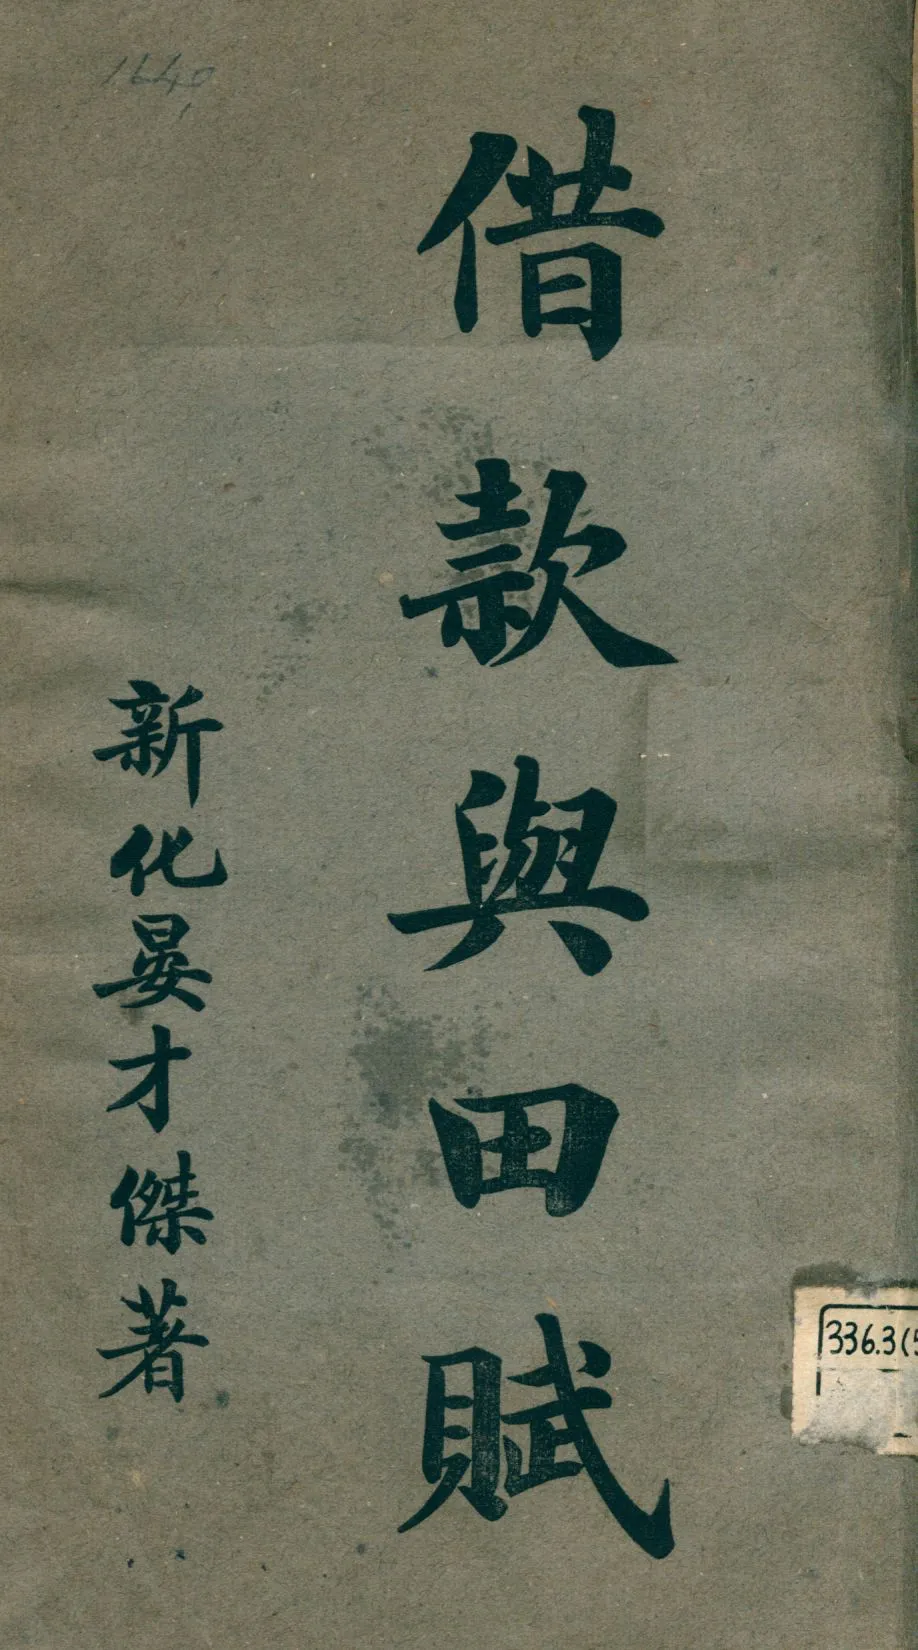 借款與田賦
新化晏才傑著
1640
336.3(5